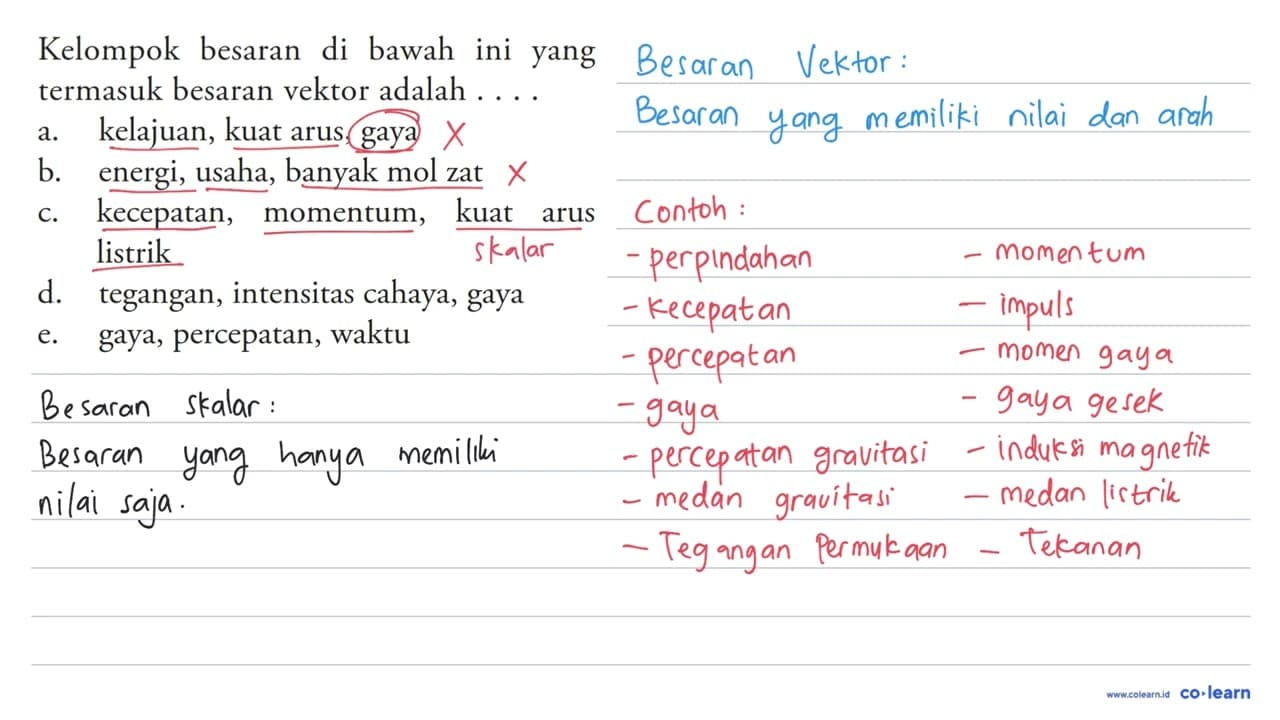 Kelompok besaran di bawah ini yang
termasuk besaran vektor adalah . . . .
a. kelajuan, kuat arus, gaya X
b. energi, usaha, banyak mol zat X
c. kecepatan, momentum, kuat arus
listrik skalar
d. tegangan, intensitas cahaya, gaya
e. gaya, percepatan, waktu
Besaran Skalar :
Besaran yang hanya memiliki
nilai saja.
Besaran Vektor :
Besaran yang memiliki nilai dan arah
Contoh :
- perpindahan
- Kecepatan
- percepatan
- gaya
- percepatan gravitasi
- medan gravitasi
- Tegangan Permukaan
- momentum
- impuls
- momen gaya
- gaya gesek
- induksi magnetik
- medan listrik
- Tekanan
www.colearn.id co·learn